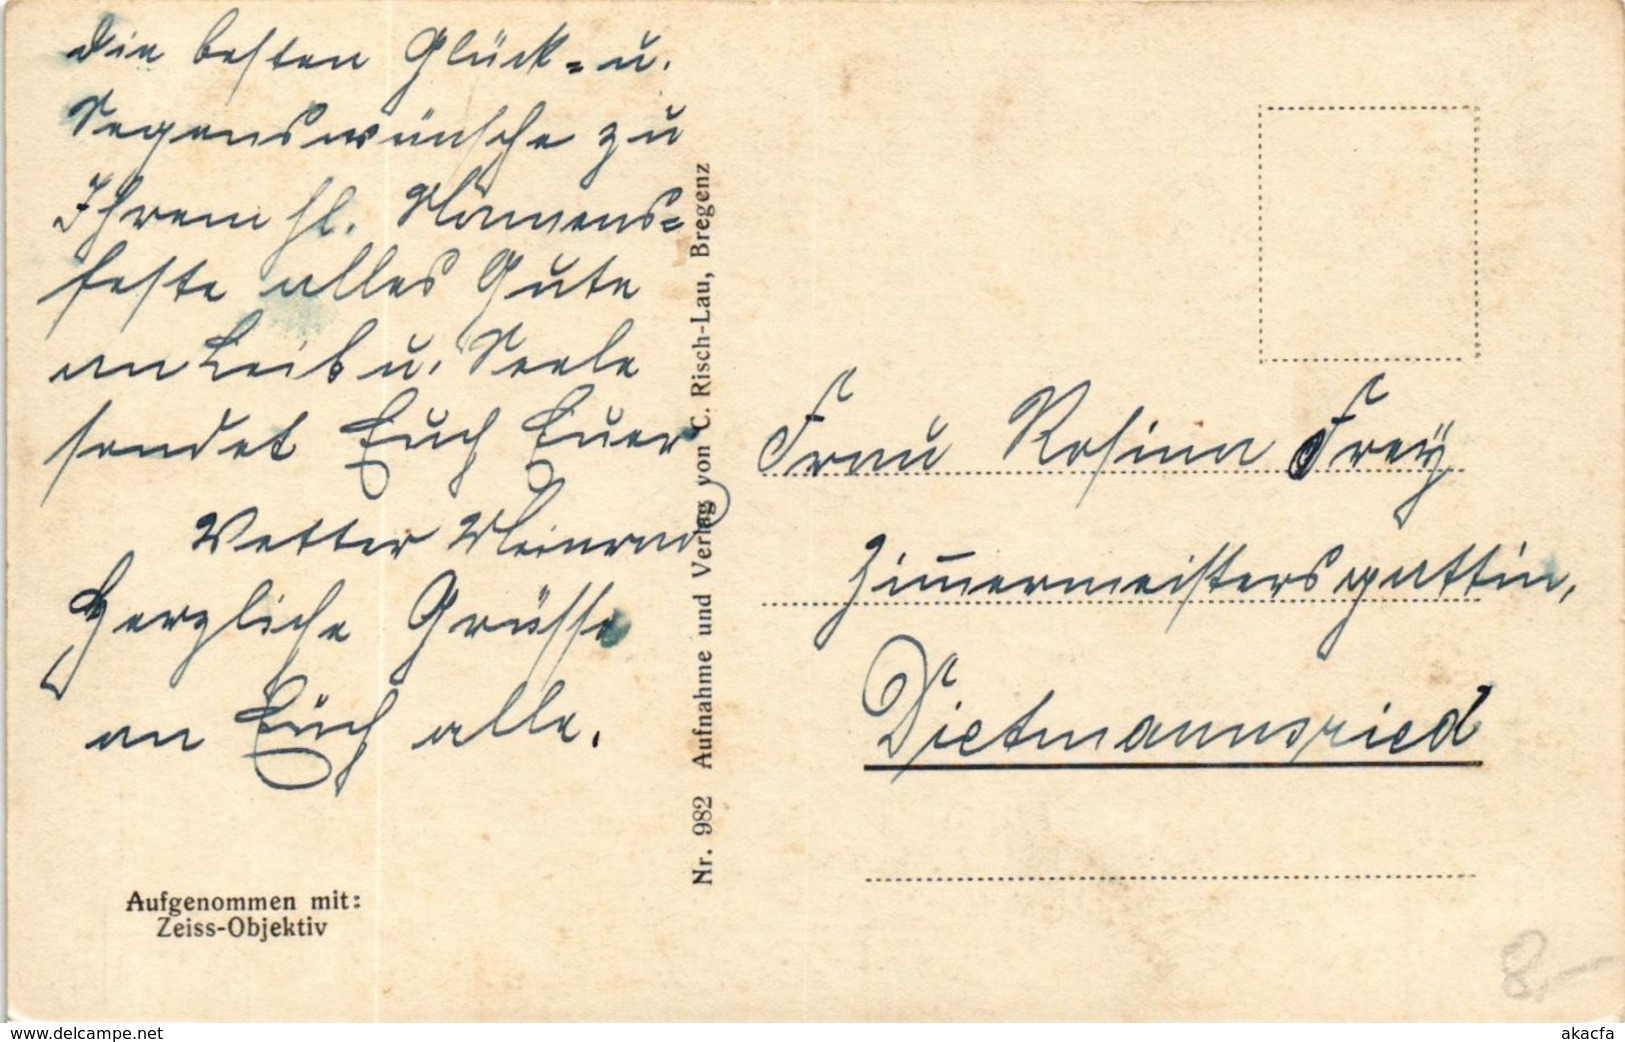 Die besten Glück- u.
Segenswünsche zu
Ihrem hl. Namens-
feste alles Gute
an Leib u. Seele
sendet Euch Euer
Vetter Meinrad
Herzliche Grüsse
an Euch alle.
Aufgenommen mit:
Zeiss-Objektiv
Nr. 982 Aufnahme und Verlag von C. Risch-Lau, Bregenz
Frau Rosina Frey
Zimmermeistersgattin,
Dietmannsried
8.-
www.delcampe.net
akacfa